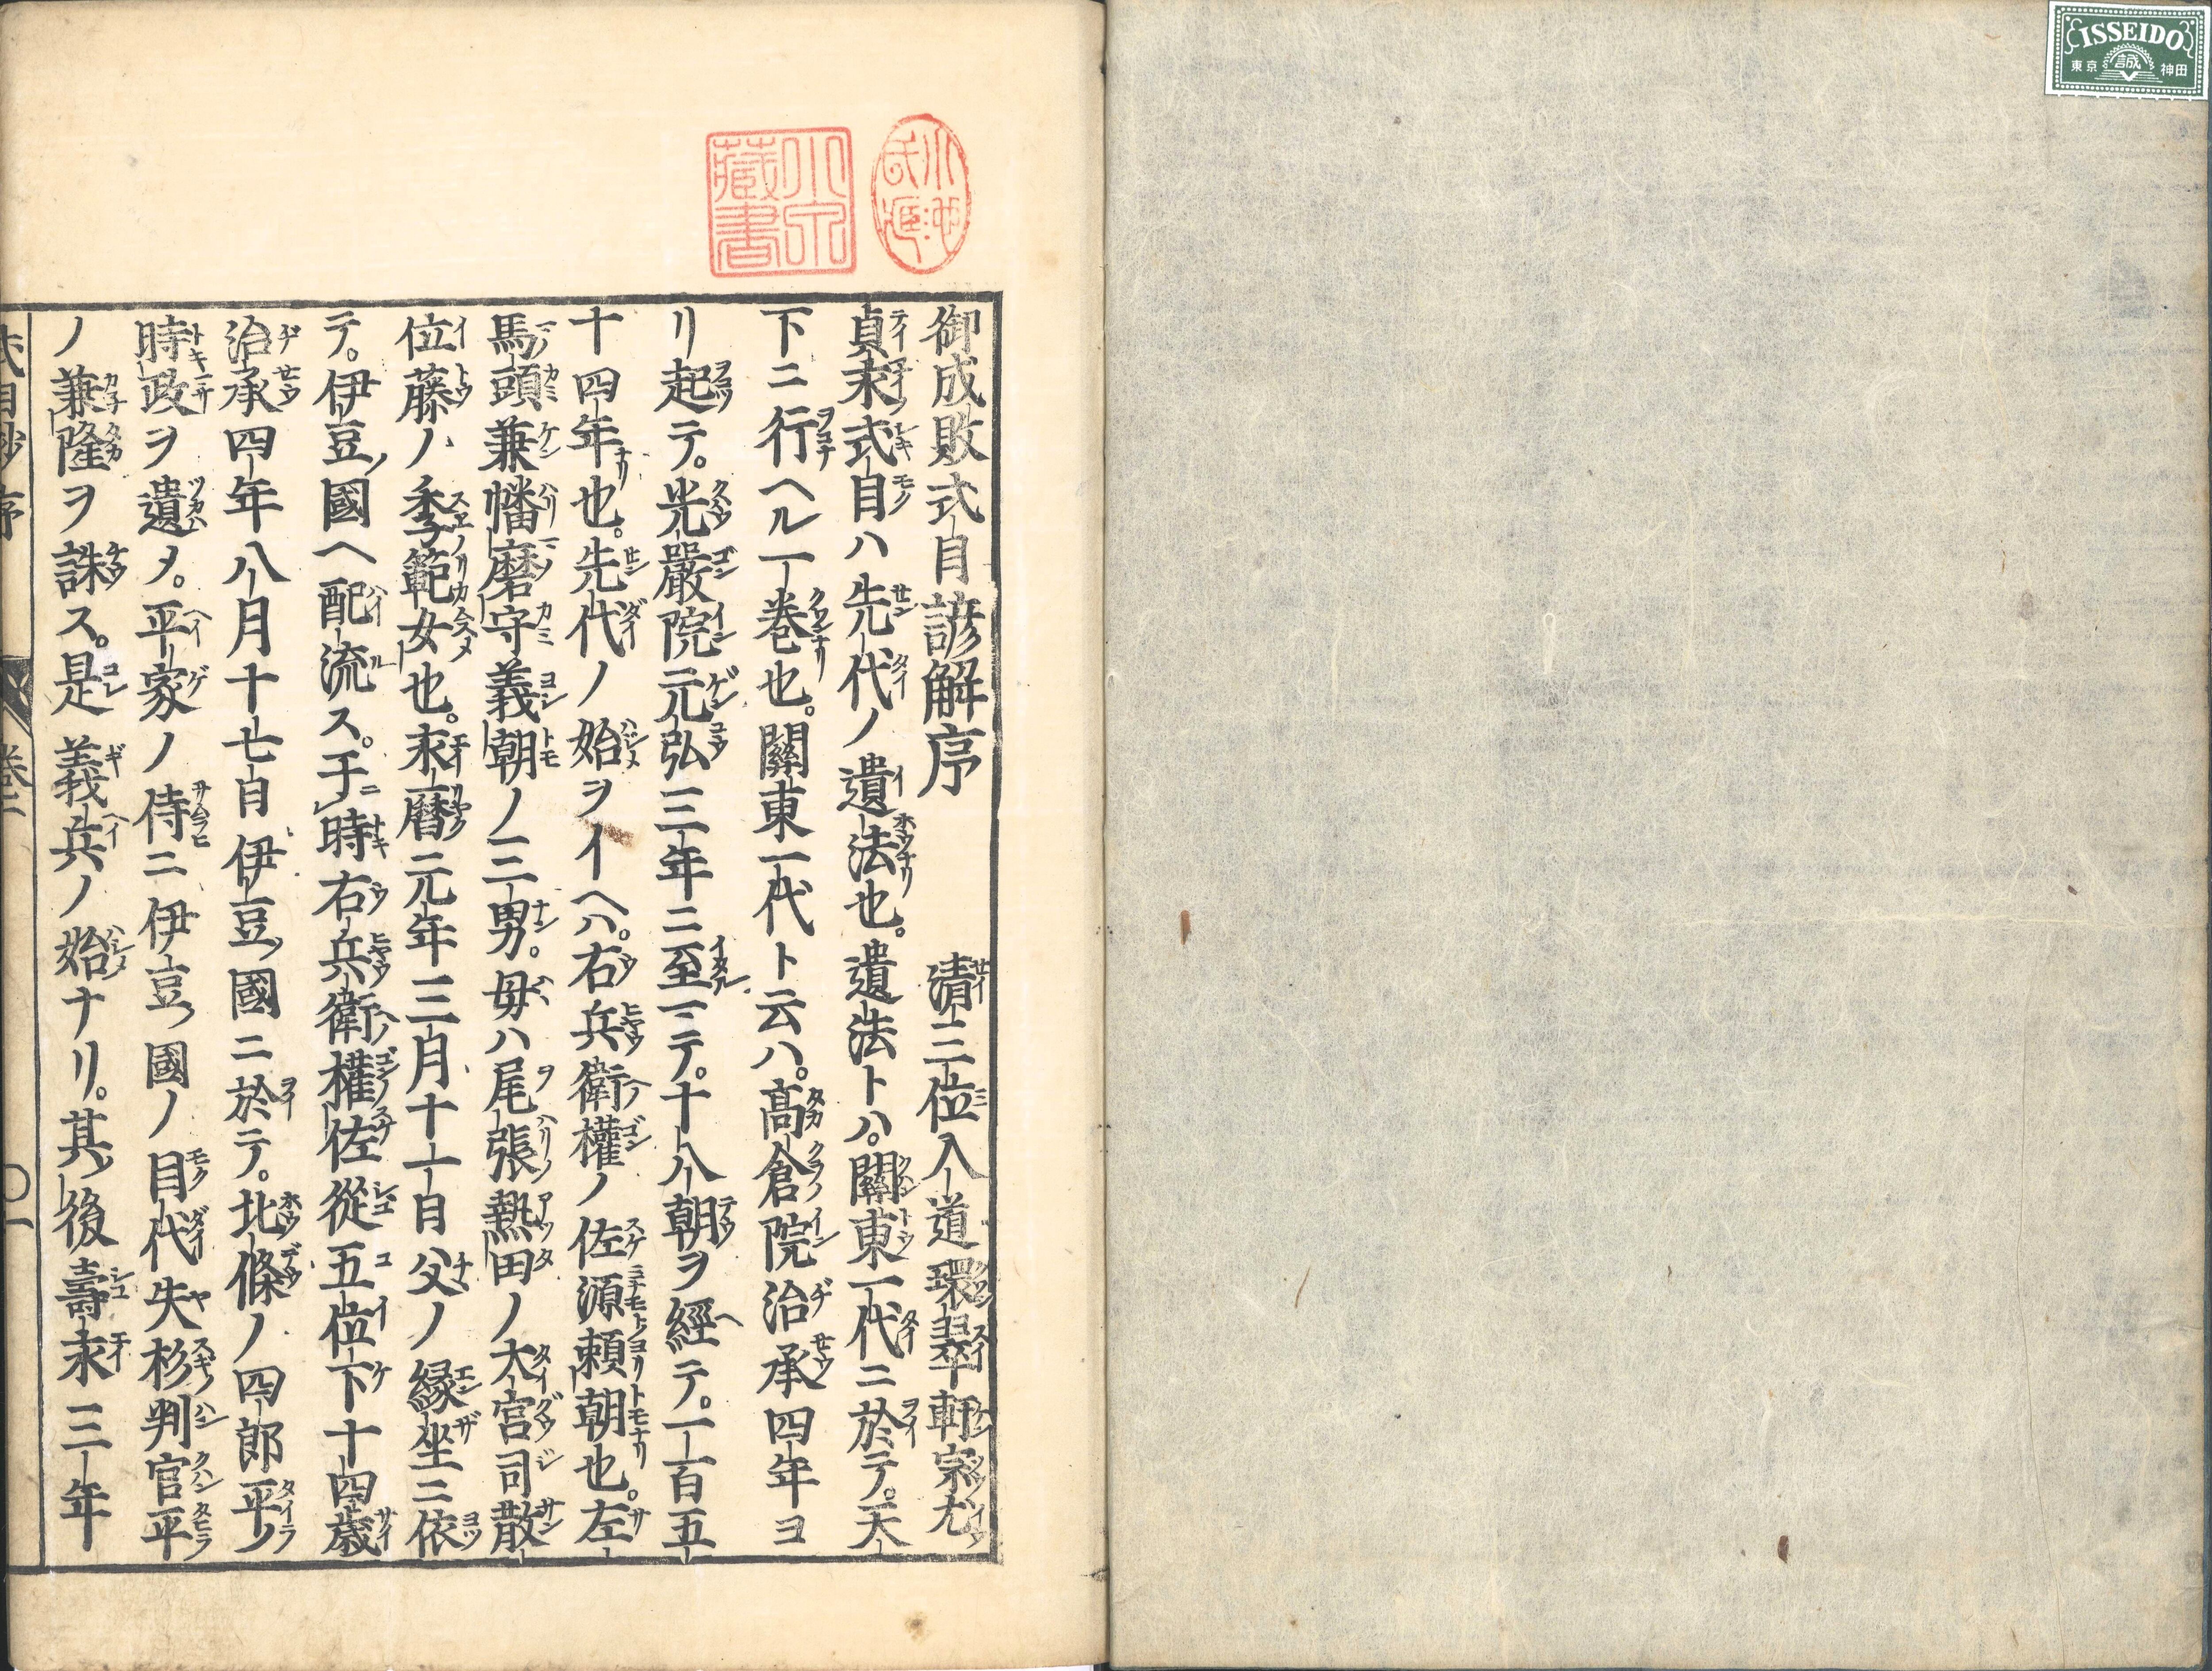 ISSEIDO
東京 誠 神田
御成敗式目諺解序 清三位入道環翠軒宗尤
貞永式目ハ先代ノ遺法也。遺法トハ。關東一代ニ於テ。天
下ニ行ヘル一巻也。關東一代ト云ハ。髙倉院治承四年ヨ
リ起テ。光嚴院元弘三年ニ至テ。十八朝ヲ經テ。一百五
十四年也。先代ノ始ヲイヘハ。右兵衛權ノ佐源頼朝也。左
馬頭兼幡磨守義朝ノ三男。毋ハ尾張熱田ノ大宮司散
位藤ノ季範女也。永曆元年三月十一日父ノ縁坐ニ依
テ。伊豆ノ國ヘ配流ス。于時右兵衛權佐從五位下十四歳
治承四年八月十七日伊豆ノ國ニ於テ。北條ノ四郎平ノ
時政ヲ遺メ。平家ノ侍ニ伊豆ノ國ノ目代矢杉判官平
ノ兼隆ヲ誅ス。是義兵ノ始ナリ。其後壽永三年
式目抄 序 巻二 〇一
小汀氏
藏書